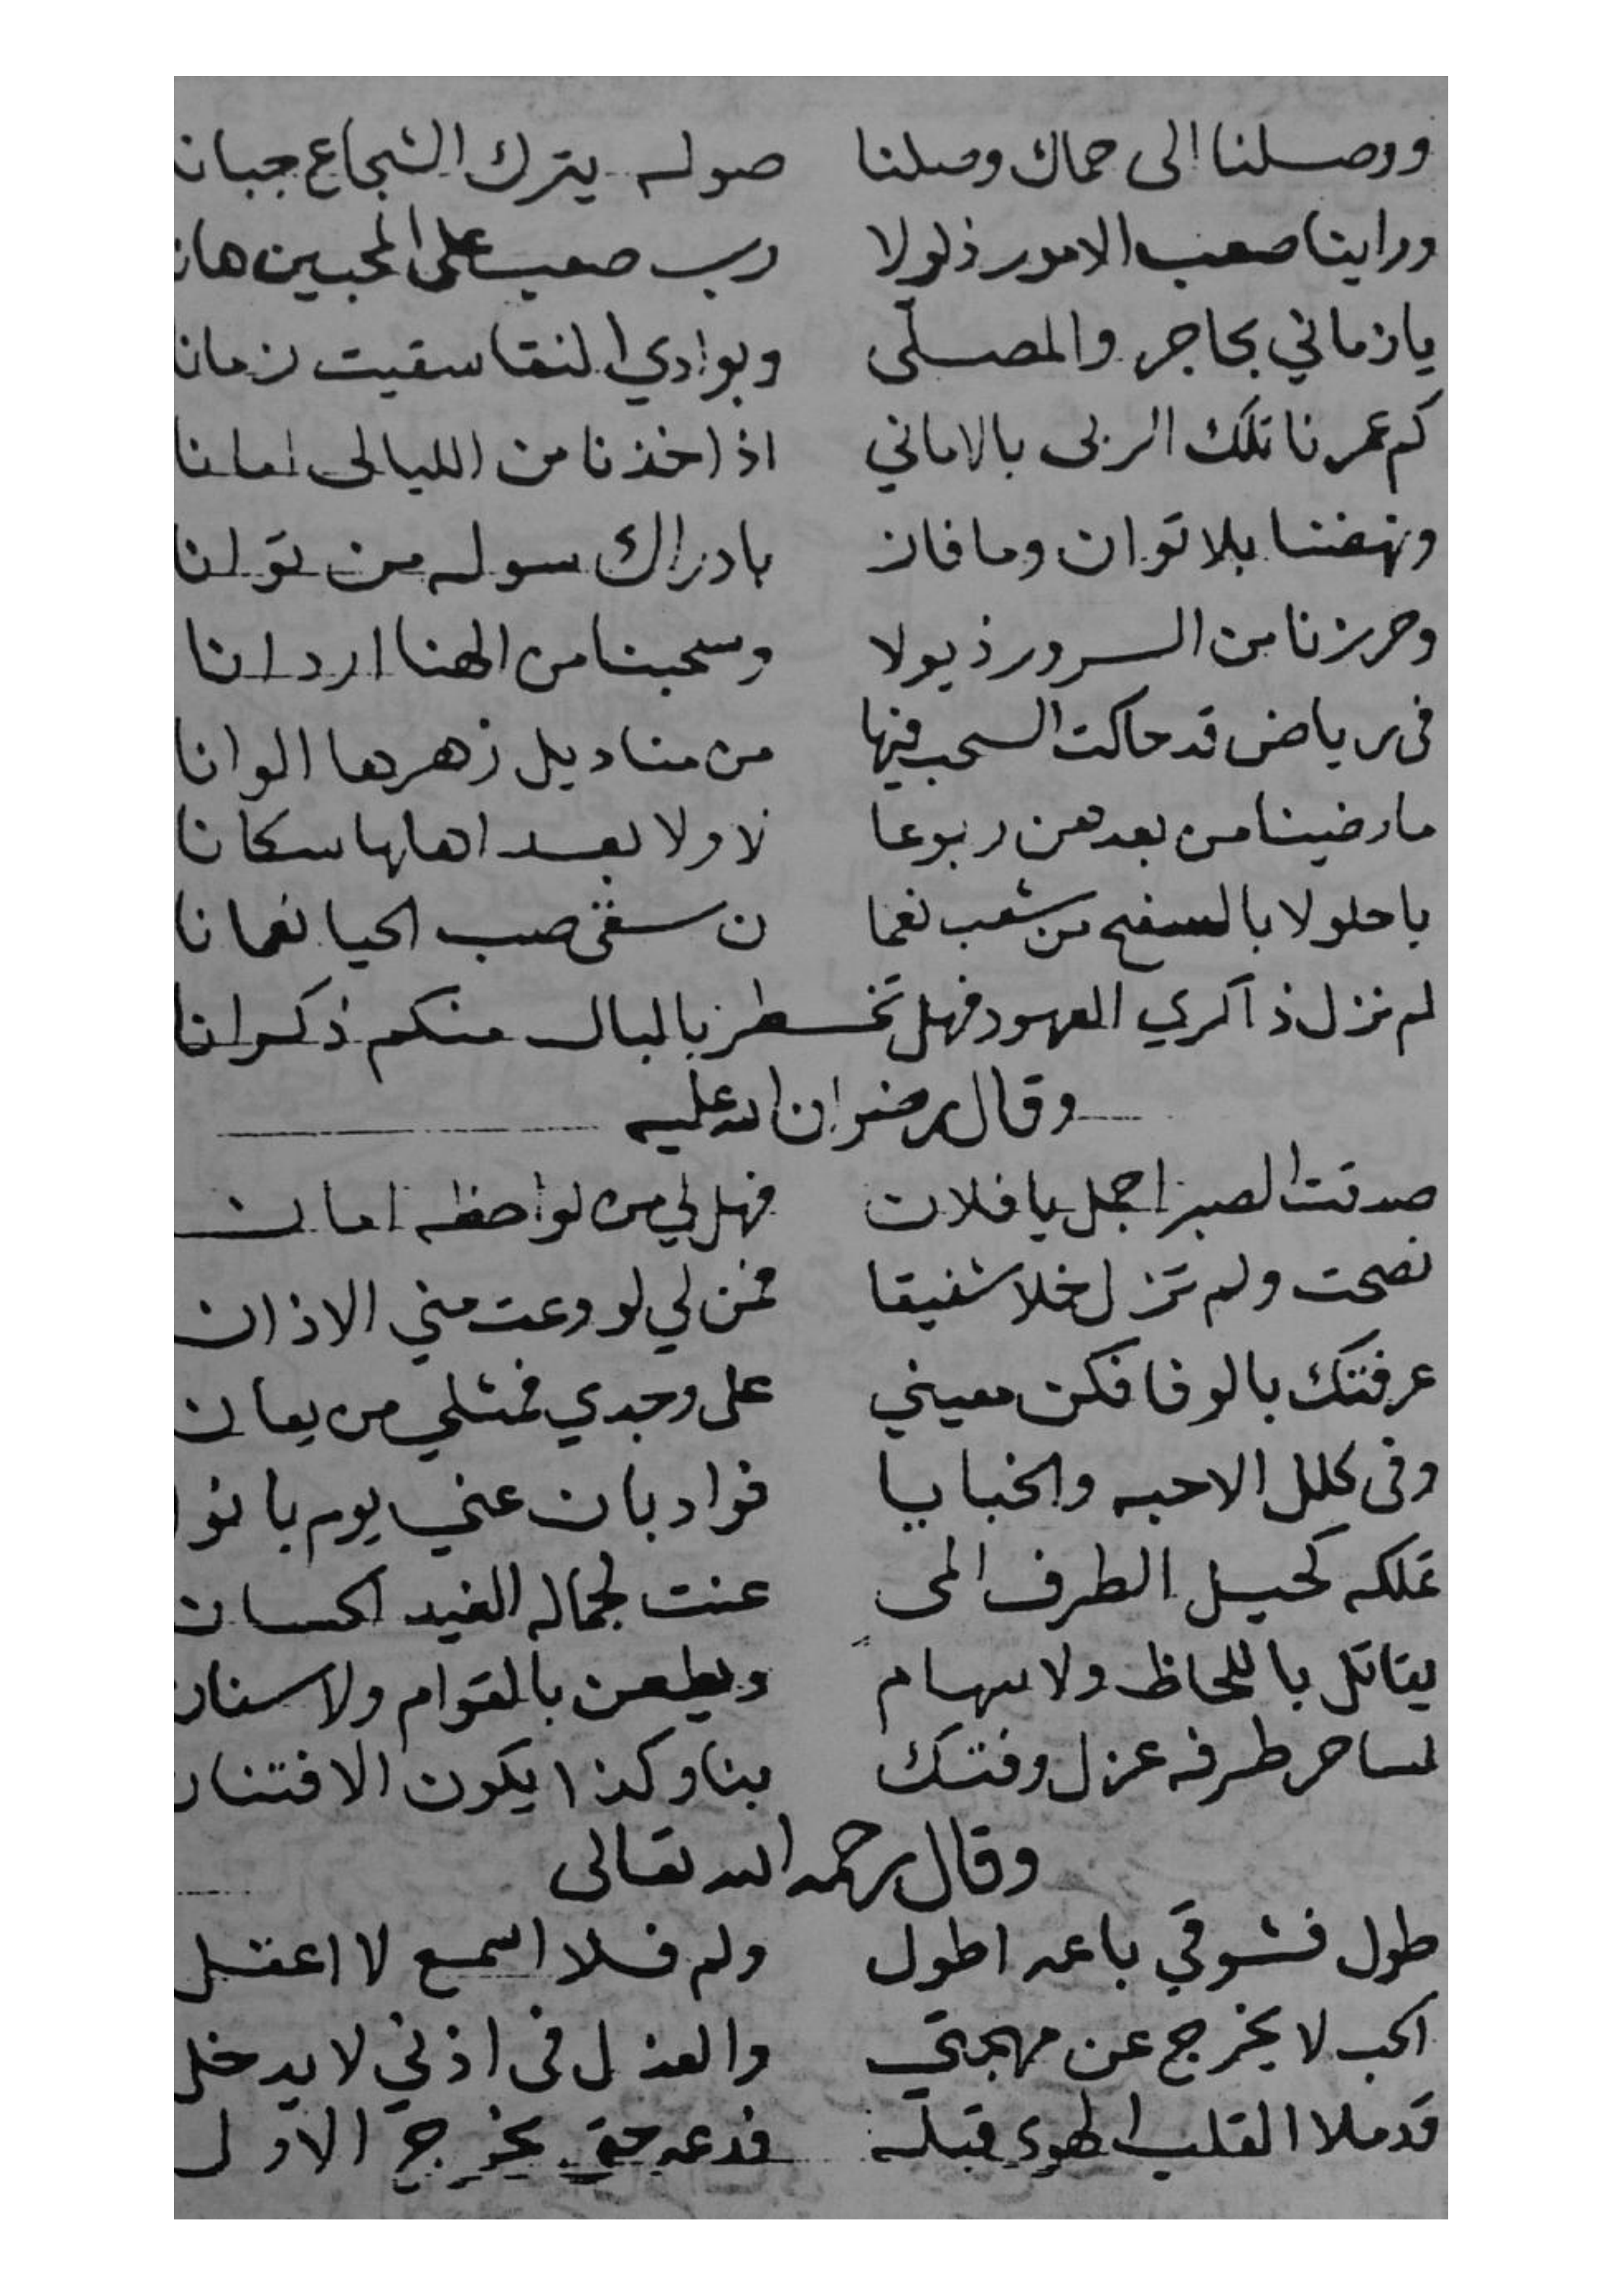 ووصلنا الى حماك وصلنا صوله يترك الشجاع جبانا
وراينا صعب الامور ذلولا رب صعب على المحبين هانا
يا زماني بحاجر والمصلى وبوادي النقا سقيت زمانا
كم عمرنا تلك الربى بالاماني اذ اخذنا من الليالى امانا
ونهضنا بلا توان وما فاز بادراك سوله من توانا
وحررنا من السرور ذيولا وسحبنا من الهنا اردانا
فى رياض قد حاكت السحب فيها من مناديل زهرها الوانا
ما رضينا من بعدهن ربوعا لا ولا بعد اهلها سكانا
يا حلولا بالسفح من شعب نعما ن سقى صيب الحيا نعمانا
لم نزل ذاكري العهود فهل تخـ ـطر بالبال منكم ذكرانا
وقال رضوان الله عليه
صدقت الصبر اجمل يا فلان فهل لي من لواحظه امان
نصحت ولم تزل خلا شفيقا فمن لي لو وعت مني الاذان
عرفتك بالوفا فكن معيني على وجدي فمثلي من يعان
وفى كلل الاحبه والخبايا فواد بان عني يوم بانوا
تملكه كحيل الطرف المى عنت لجماله الغيد الحسان
يقاتل باللحاظ ولا سهام ويطعن بالقوام ولا سنان
لساحر طرفه غزل وفتك بنا وكذا يكون الافتنان
وقال رحمه الله تعالى
طول فشوقي باعه اطول ولم فلا اسمع لا اعقل
الحب لا يخرج عن مهجتي والعذل فى اذني لا يدخل
قد ملا القلب الهوى قبله فدعه حتى يخرج الاول